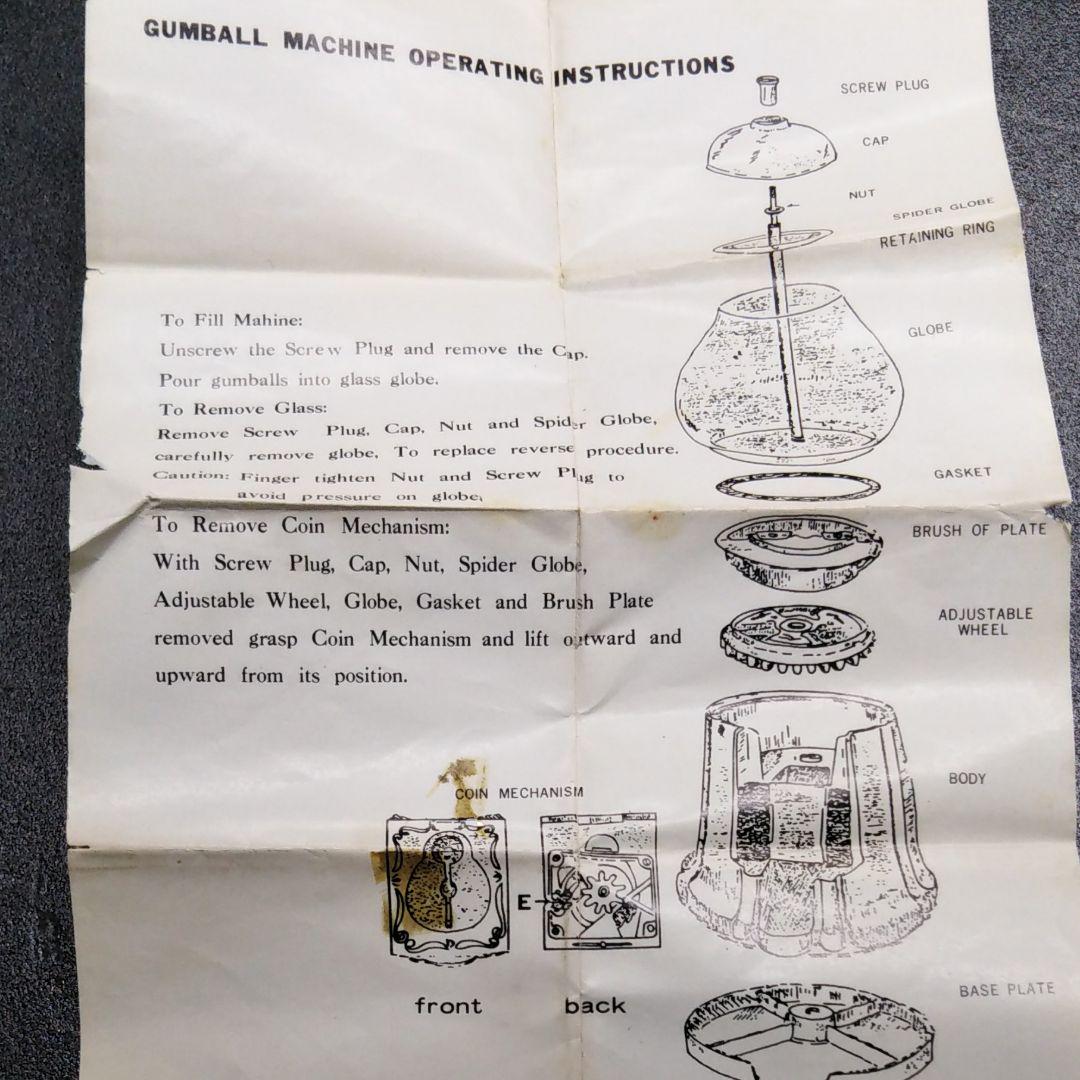 GUMBALL MACHINE OPERATING INSTRUCTIONS
SCREW PLUG
CAP
NUT
SPIDER GLOBE
RETAINING RING
GLOBE
GASKET
BRUSH OF PLATE
ADJUSTABLE
WHEEL
BODY
BASE PLATE
To Fill Mahine:
Unscrew the Screw Plug and remove the Cap.
Pour gumballs into glass globe.
To Remove Glass:
Remove Screw Plug, Cap, Nut and Spider Globe,
carefully remove globe, To replace reverse procedure.
Caution: Finger tighten Nut and Screw Plug to
avoid pressure on globe,
To Remove Coin Mechanism:
With Screw Plug, Cap, Nut, Spider Globe,
Adjustable Wheel, Globe, Gasket and Brush Plate
removed grasp Coin Mechanism and lift outward and
upward from its position.
COIN MECHANISM
E
front
back